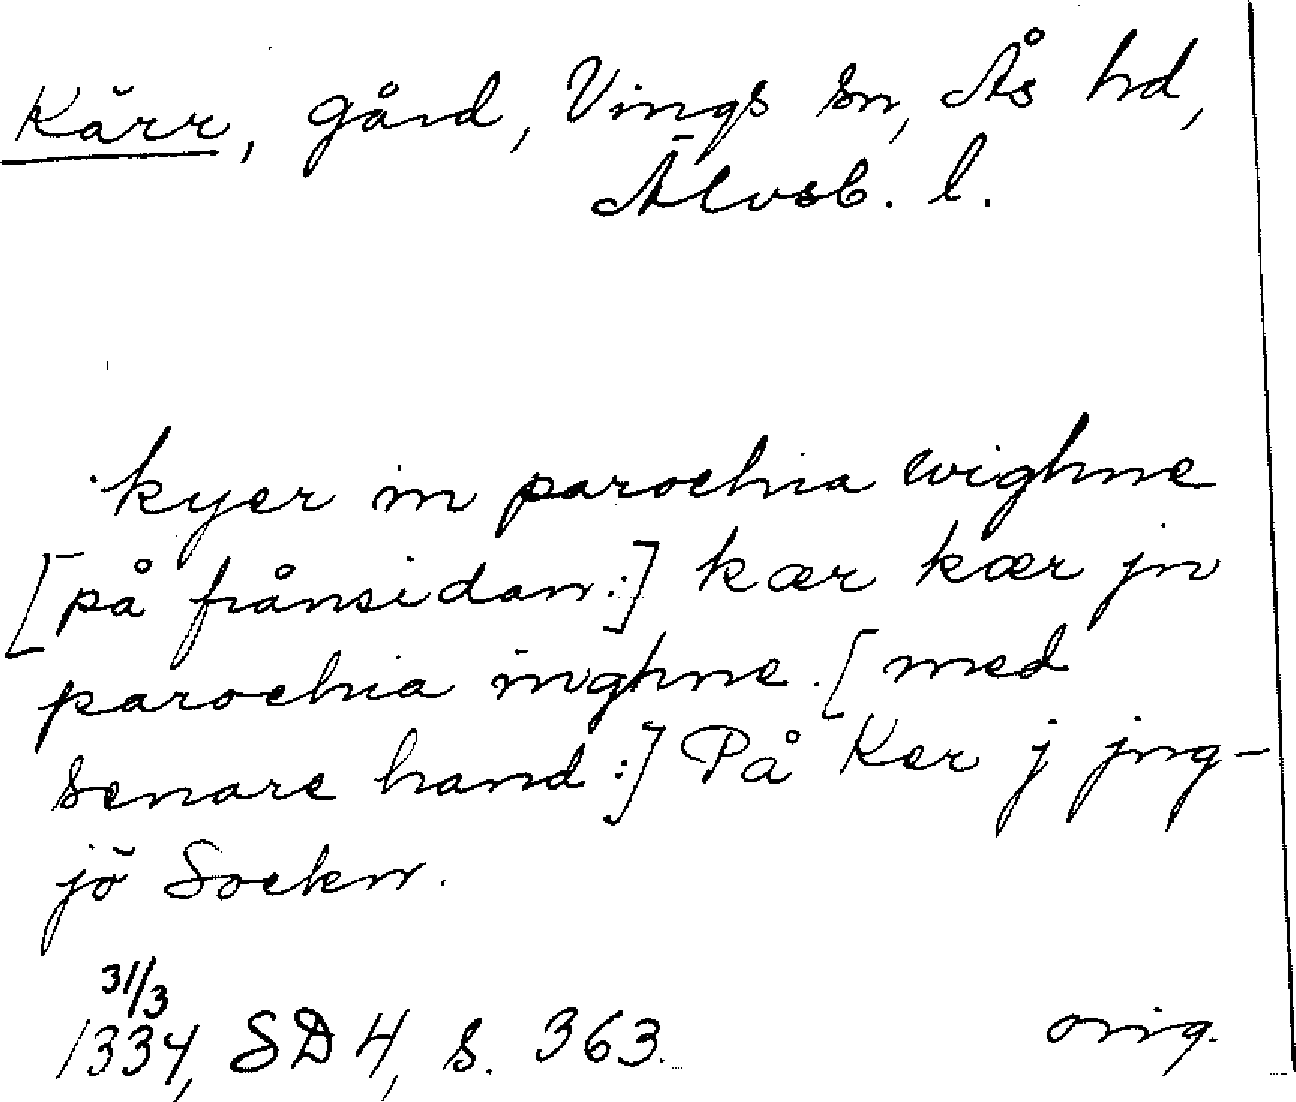 Kärr, gård, Vings sn, Ås hd,
Älvsb. l.
kyer in parochia wighne
[på frånsidan:] kær kær jn
parochia inghne. [med
senare hand:] På Ker j jng-
jö Sockn.
31/3
1334, SD 4, s. 363.
orig.